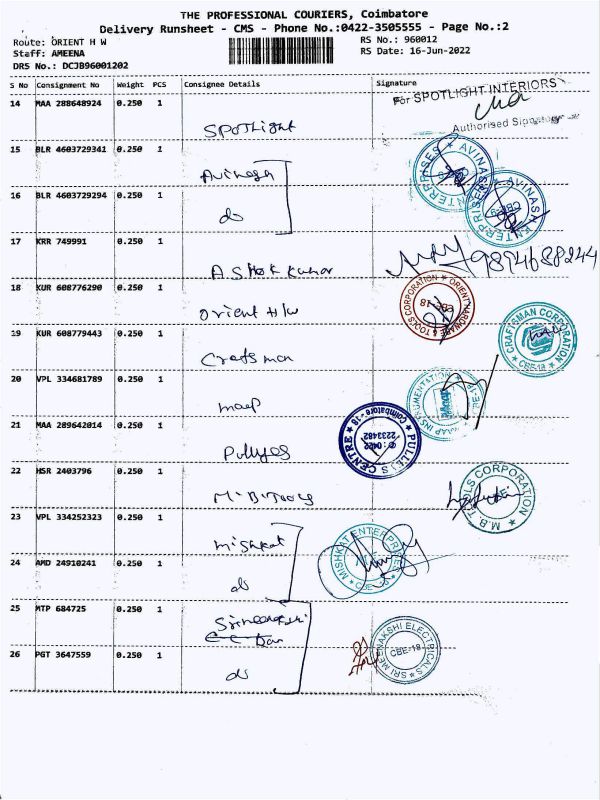 THE PROFESSIONAL COURIERS, Coimbatore
Delivery Runsheet - CMS - Phone No.:0422-3505555 - Page No.:2
Route: ORIENT H W
RS No.: 960012
Staff: AMEENA
RS Date: 16-Jun-2022
DRS No.: DCJB96001202
S No Consignment No Weight PCS Consignee Details Signature
For SPOTLIGHT INTERIORS
14 MAA 288648924 0.250 1
Authorised Signatory
SPOTLight
15 BLR 4603729341 0.250 1
AVINASA ENTERPRISES
Avinasa
16 BLR 4603729294 0.250 1
AVINASA ENTERPRISES CBE-18
do
17 KRR 749991 0.250 1
9894688244
AShok kumar
18 KUR 608776290 0.250 1
ORIENT HARDWARE & TOOLS CORPORATION CBE-18
Orient H/w
19 KUR 608779443 0.250 1
CRAFTSMAN CORPORATION CBE-18
Craftsman
20 VPL 334681789 0.250 1
MAAP INSTRUMENTATION
maap
21 MAA 289642014 0.250 1
PULLEYS CENTRE Coimbatore-18 ✆: 0422 2233482
Pulleyes
22 HSR 2403796 0.250 1
M.B. TOOLS CORPORATION
M.B.Tools
23 VPL 334252323 0.250 1
MISHKAT ENTERPRISES
mishkat
24 AMD 24910241 0.250 1
do
25 MTP 684725 0.250 1
SRI MEENAKSHI ELECTRICALS CBE-18
26 PGT 3647559 0.250 1
do